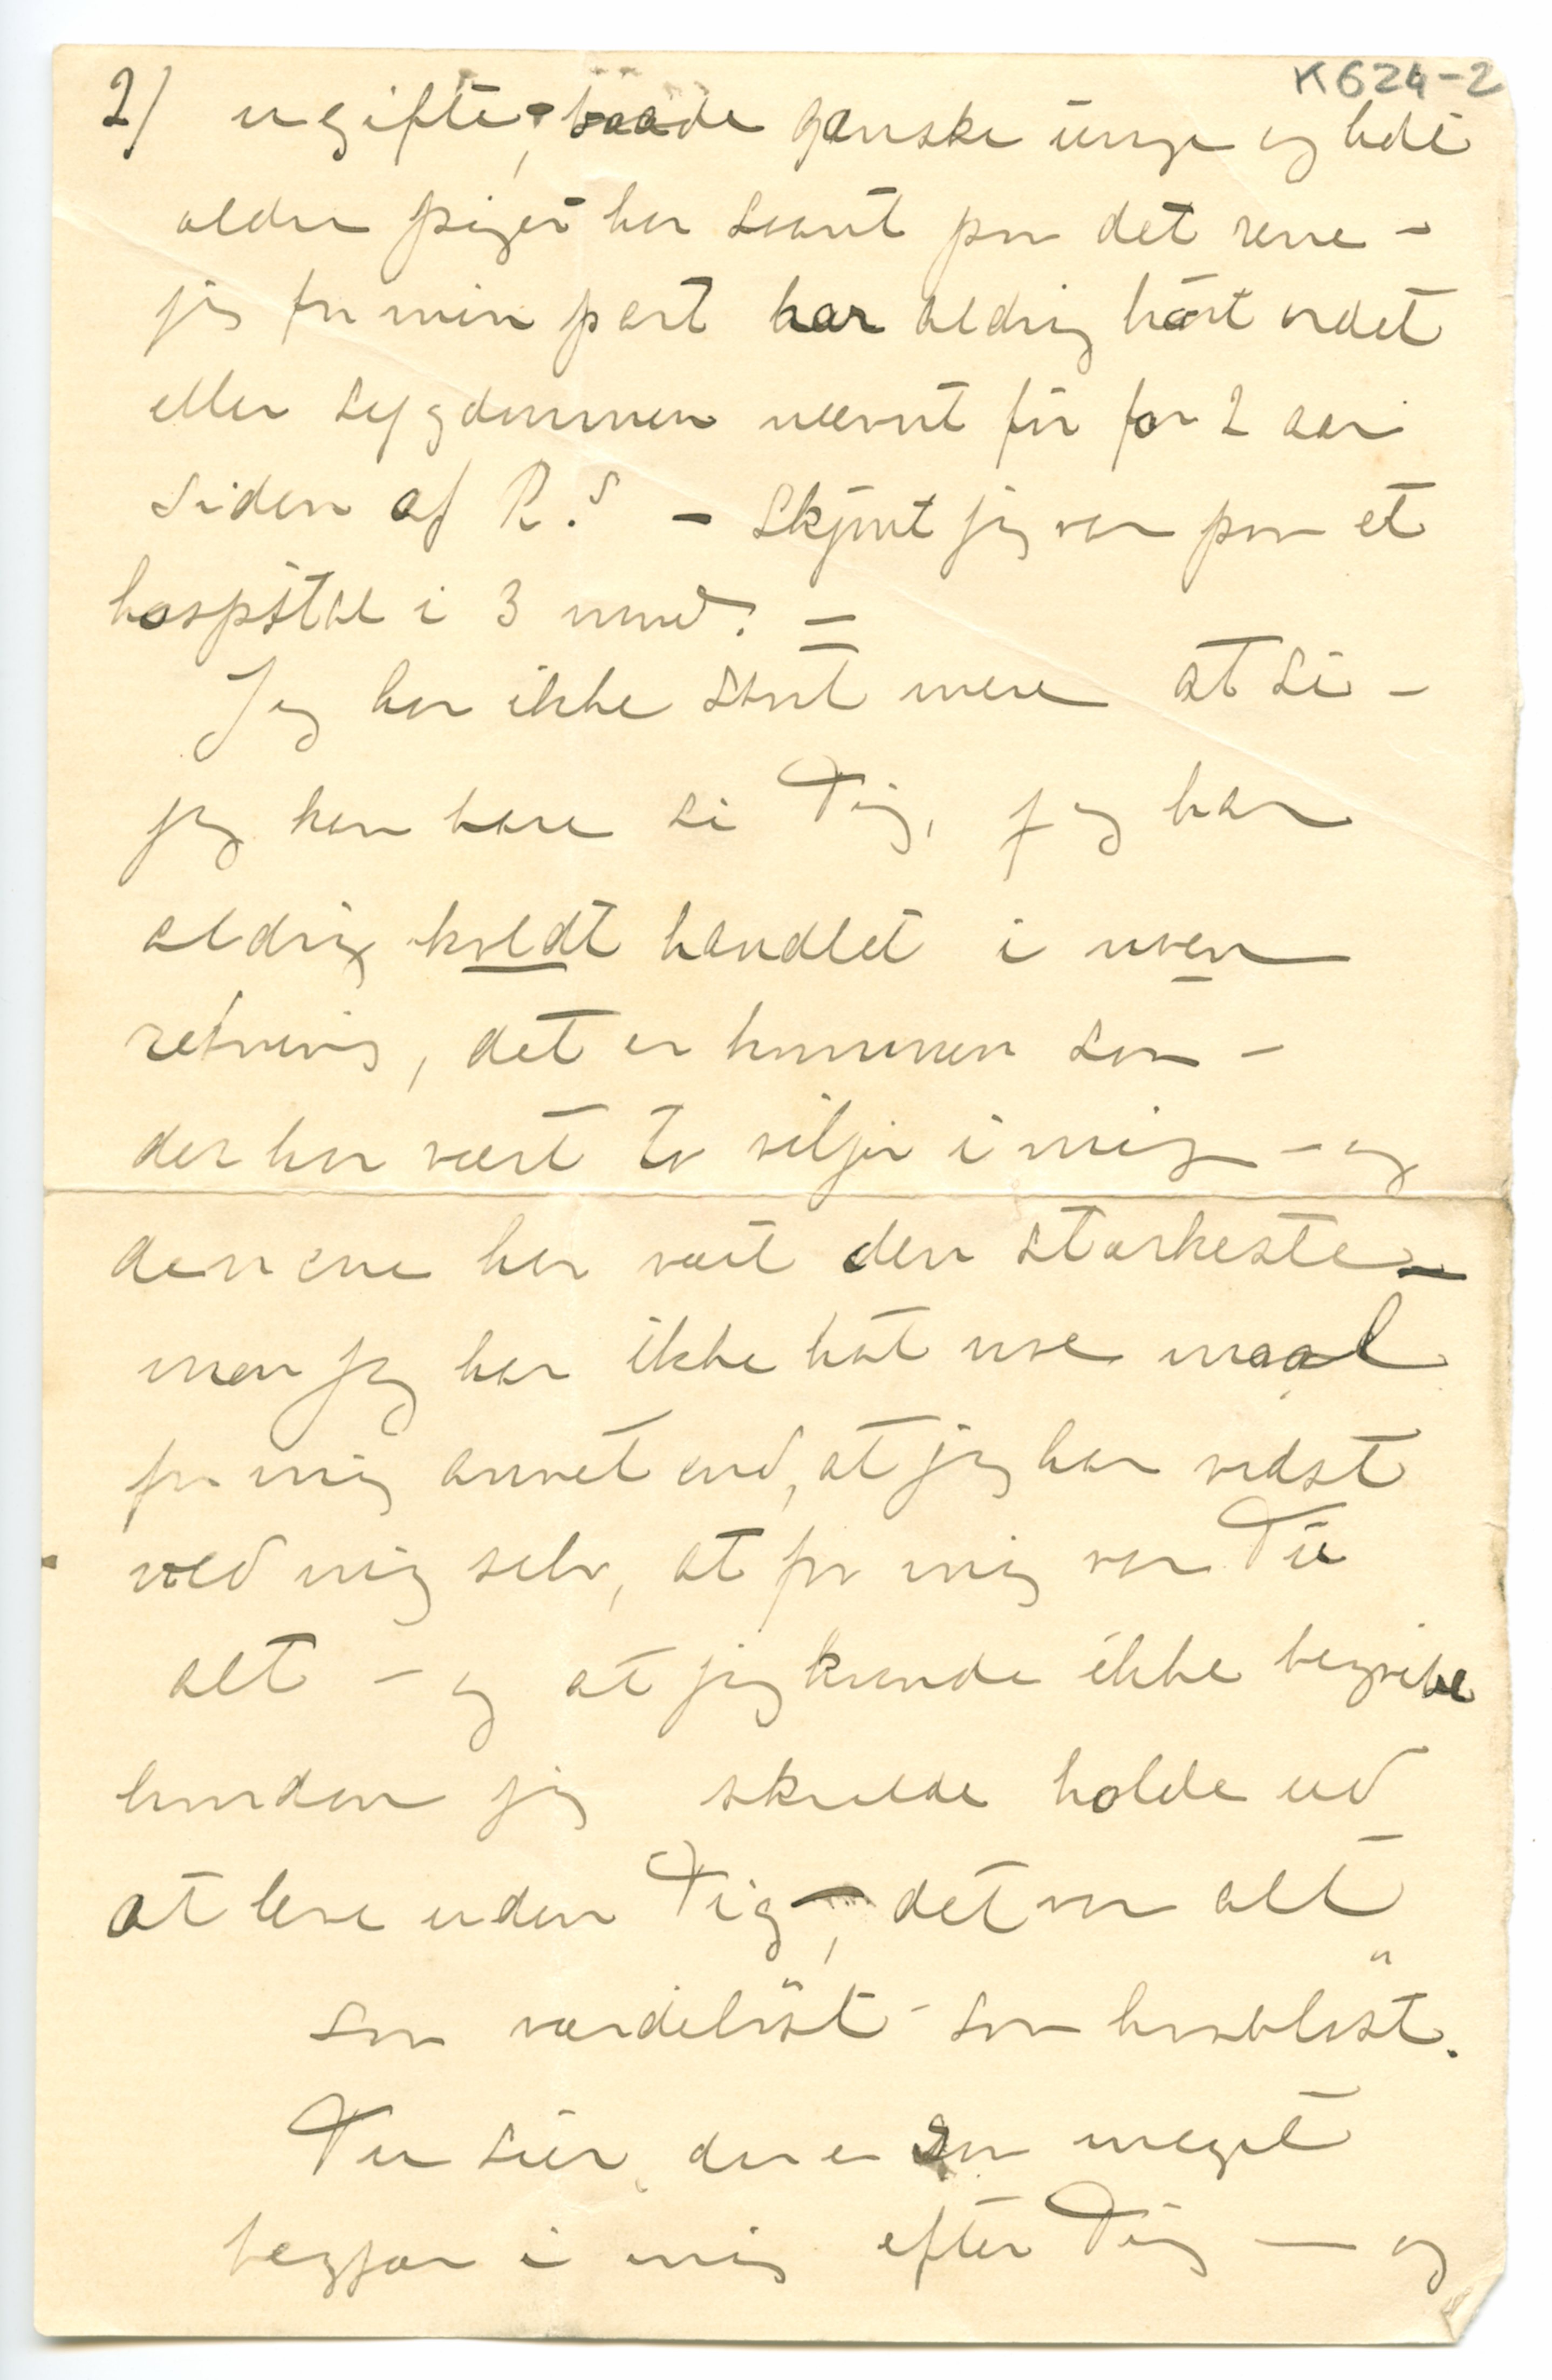 K624-2
2/ ugifte, baade ganske unge og lidt
ældre piger har svart paa det rene –
jeg for min part har aldrig hørt ordet
eller sygdommen nævnt før for 2 aar
siden af R.s – skjønt jeg var paa et
hospital i 3 mnd. –
Jeg har ikke stort mere at si –
jeg kan bare si Dig, jeg har
aldrig koldt handlet i noen
retning, det er kommen som –
der har vært to viljer i mig – og
den ene har vært den stærkeste –
men jeg har ikke hat noe maal
for mig annet end, at jeg har vidst
med mig selv, at for mig var Du
alt – og at jeg kunde ikke begribe
hvordan jeg skulde holde ud
at leve uden Dig –, det var alt
som værdiløst – som haabløst.
Du sier, der er saa meget
begjær i mig efter Dig – og